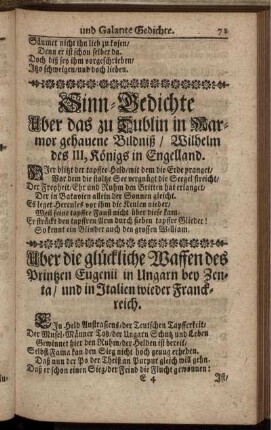 und Galante Gedichte. 71
Säumet nicht ihn lieb zu kosen/
Denn er ist schon selber da.
Doch diß sey ihm vorgeschrieben/
Itzo schweigen/und doch lieben.
Sinn-Gedichte
Uber das zu Dublin in Mar-
mor gehauene Bildniß/ Wilhelm
des III, Königs in Engelland.
HIer blitzt der tapffre Held/mit dem die Erde pranget/
Vor dem die stoltze See vergnügt die Seegel streicht/
Der Freyheit/Ehr und Ruhm den Britten hat erlanget/
Der in Batavien allein der Sonnen gleicht.
Es leget Hercules vor ihm die Keulen nieder/
Weil seine tapffre Faust nicht über diese kam;
Er streckt den tapffern Arm durch sieben tapffre Glieder!
So kennt ein Blinder auch den grossen William.
Uber die glückliche Waffen des
Printzen Eugenii in Ungarn bey Zen-
ta/ und in Italien wieder Franck-
reich.
EIn Held Austrasiens/der Teutschen Tapfferkeit/
Der Musel-Männer Tod/der Ungarn Schutz und Leben
Gewinnet hier den Ruhm/der Helden ist bereit/
Selbst Fama kan den Sieg nicht hoch genug erheben.
Daß nun der Po der Theiß an Purpur gleich will gehn,
Daß er schon einen Sieg/der Feind die Flucht gewonnen:
E 4 Ist/